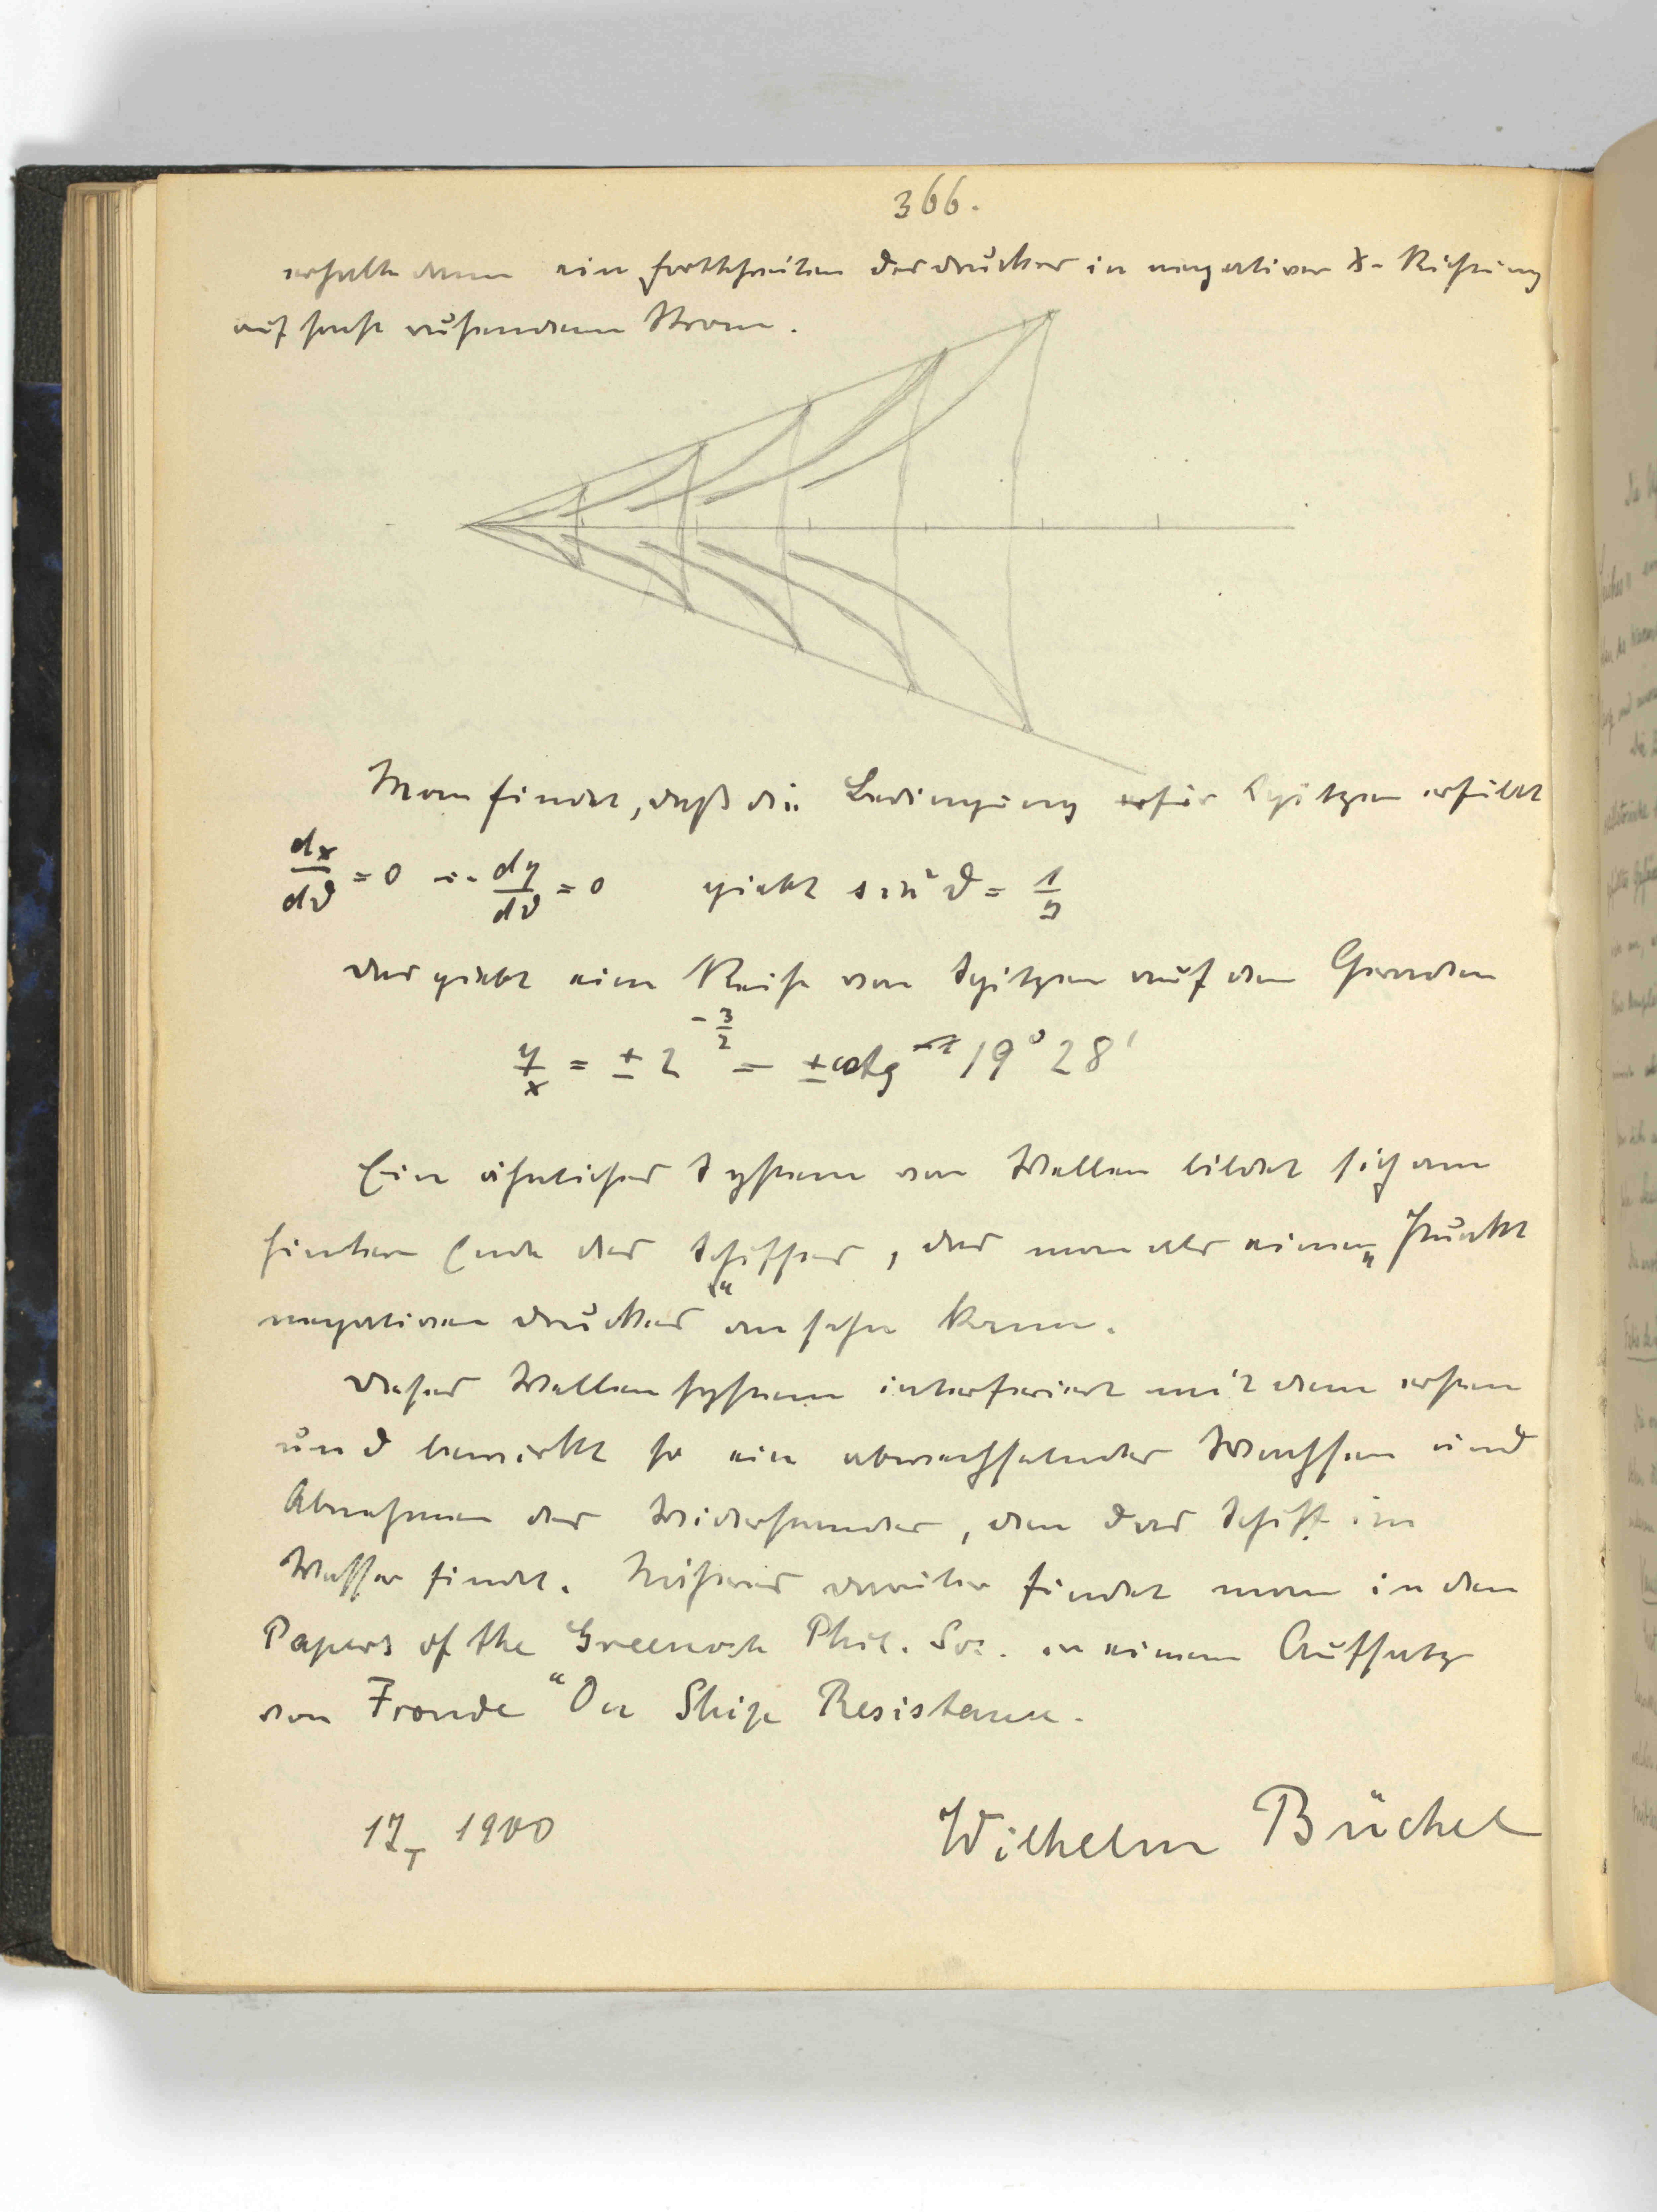 366.
erhalte dann ein fortschreiten des druckes in negativer x-Richtung
auf sonst ruhendem Strom.
Man findet, daß die Bedingung für Spitzen erfüllt
dx/dϑ = 0 dy/dϑ = 0 giebt sin²ϑ = 1/3
das giebt eine Reihe von Spitzen auf den Geraden
y/x = ± 2^(-3/2) = ± ctg 19° 28'
Ein ähnliches System von Wellen bildet sich am
hintern Ende des Schiffes, das man als einen „Punkt
negativen druckes“ ansehn kann.
dieses Wellensystem interferiert mit dem ersten
und bewirkt so ein abwechselndes Wachsen und
Abnehmen des Widerstandes, den das Schiff im
Wasser findet. Näheres darüber findet man in den
Papers of the Greenock Phil. Soc. in einem Aufsatz
von Froude "On Ship Resistance.
1900 Wilhelm Büchel